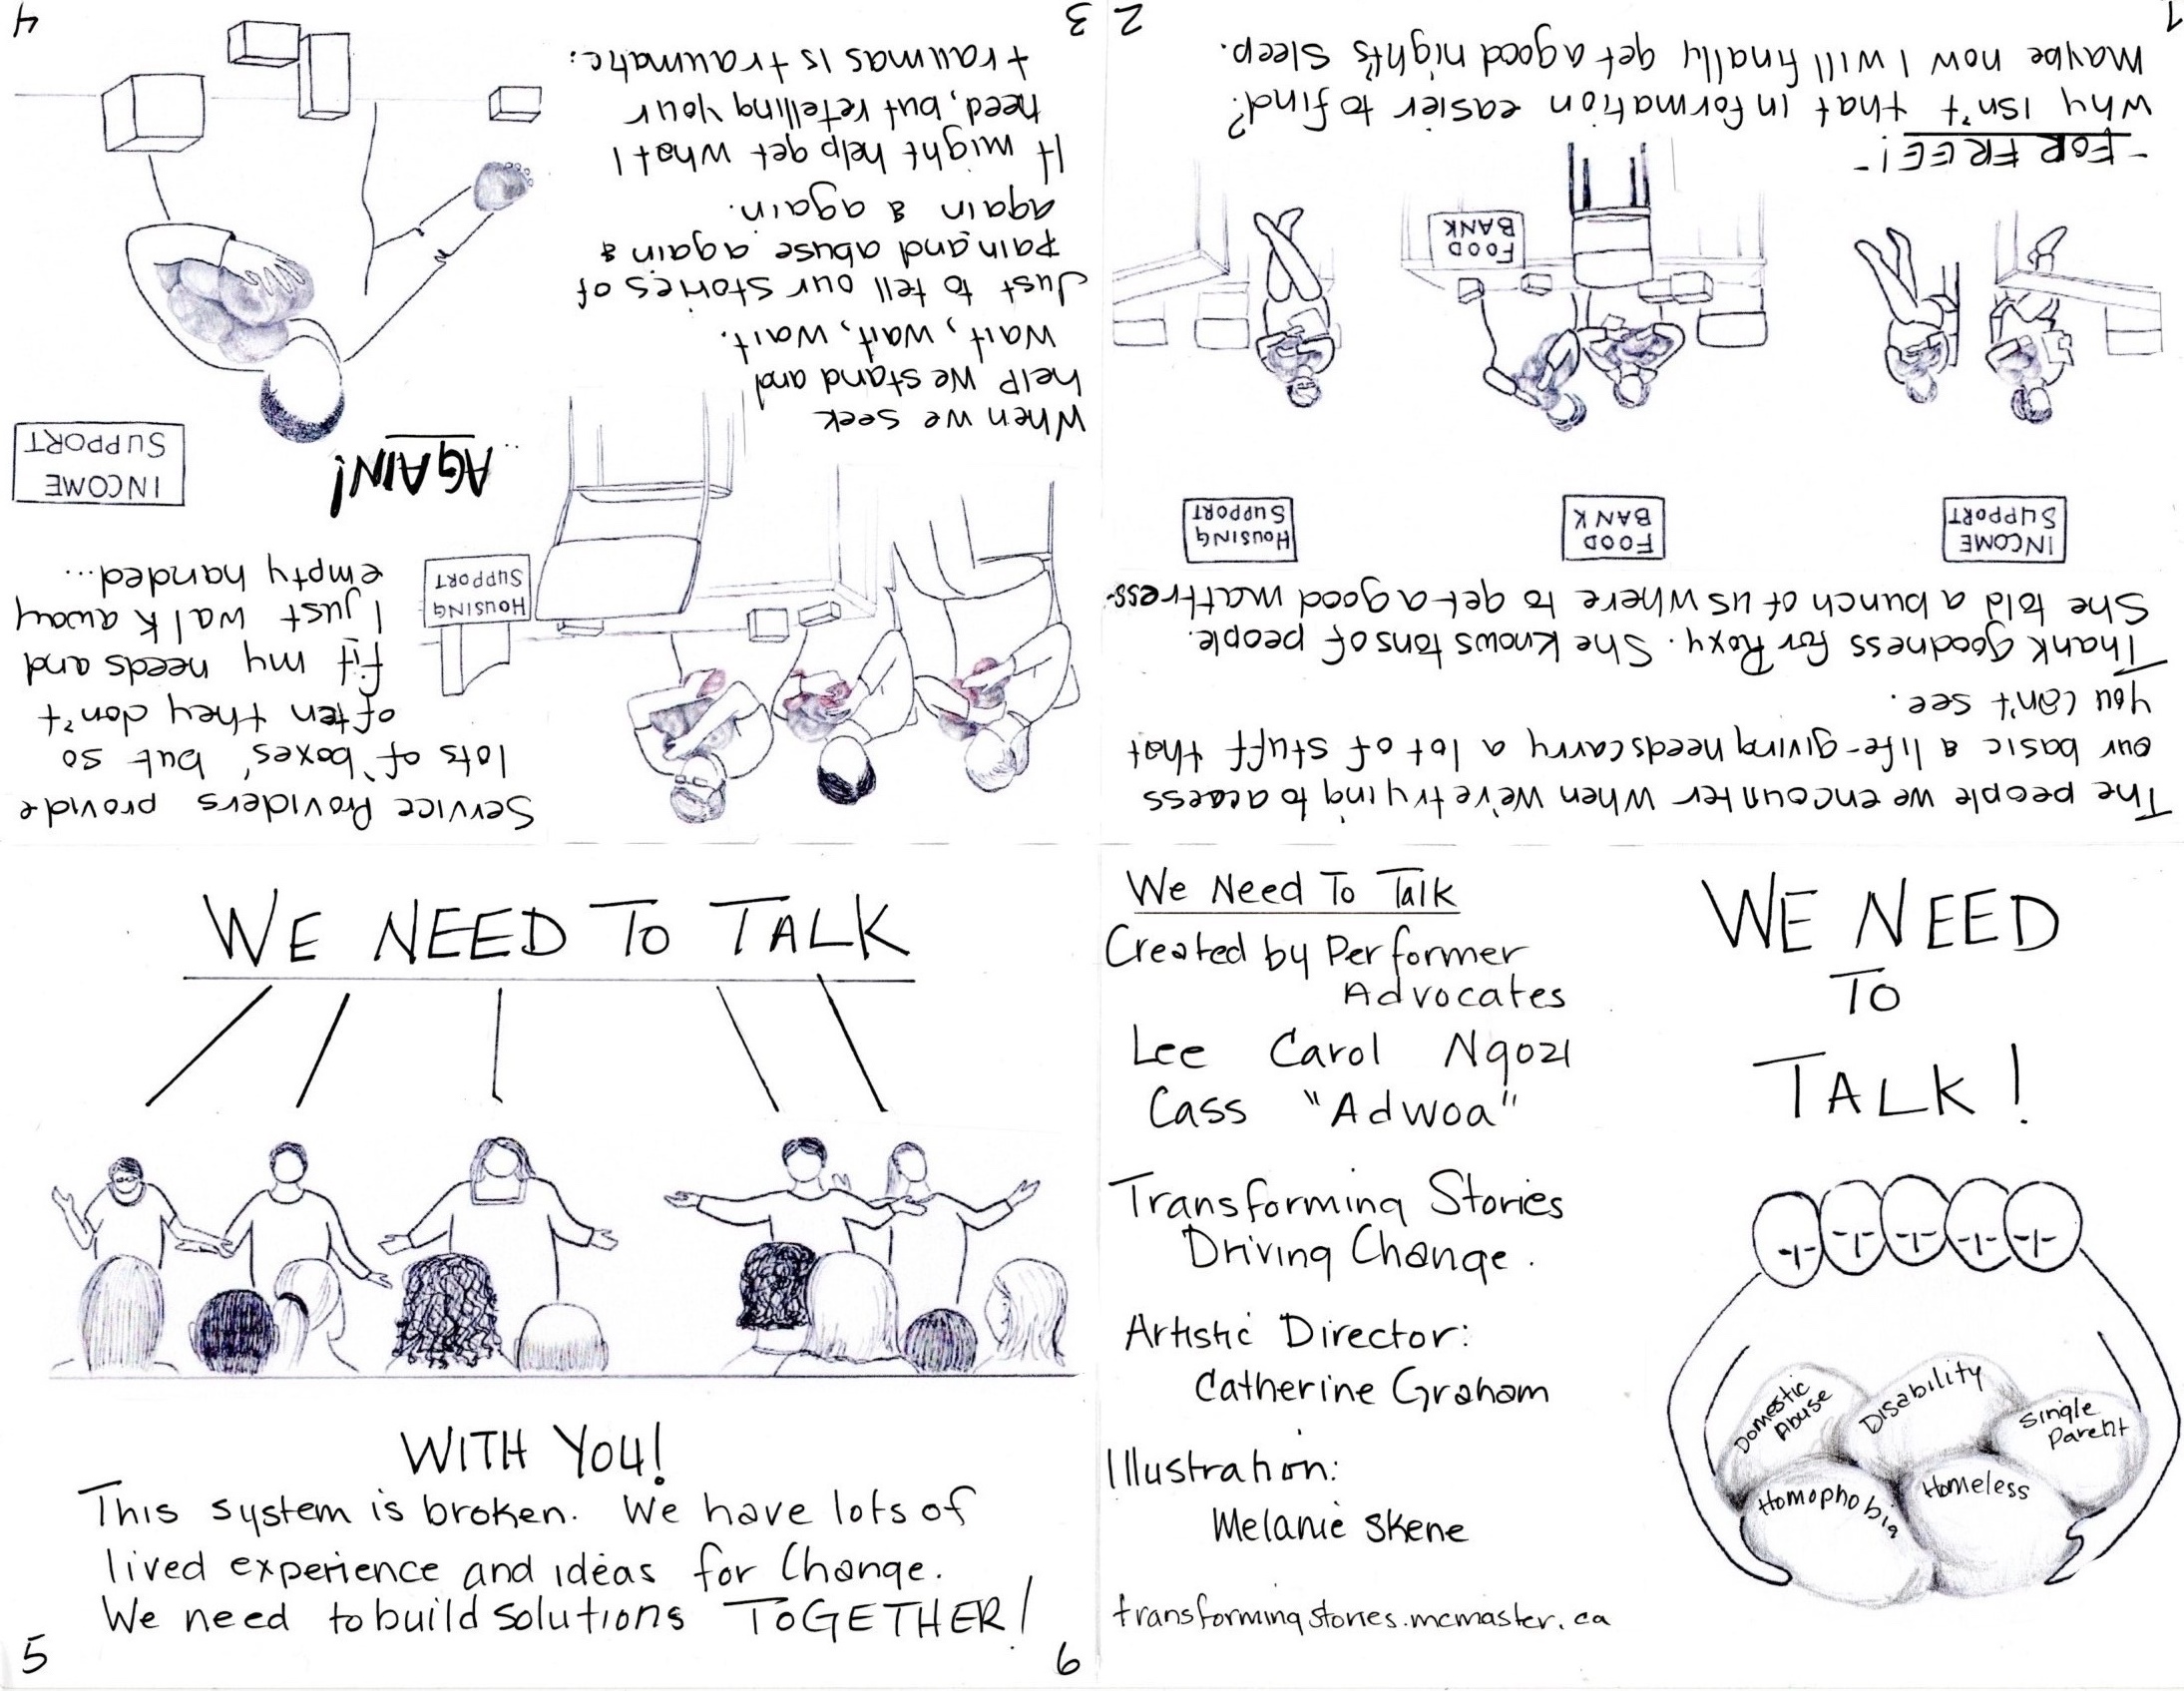 WE NEED
TO
TALK!
Domestic
Abuse
Disability
Single
Parent
Homophobia
Homeless
The people we encounter when we're trying to access
our basic & life-giving needs carry a lot of stuff that
you can't see.
Thank goodness for Roxy. She knows tons of people.
She told a bunch of us where to get a good mattress-
INCOME
SUPPORT
FOOD
BANK
HOUSING
SUPPORT
FOOD
BANK
-FOR FREE!-
Why isn't that information easier to find?
Maybe now I will finally get a good night's sleep.
1
2
When we seek
help we stand and
wait, wait, wait.
Just to tell our stories of
pain and abuse again &
again & again.
It might help get what I
need, but retelling your
traumas is traumatic.
HOUSING
SUPPORT
3
Service Providers provide
lots of 'boxes', but so
often they don't
fit my needs and
I just walk away
empty handed...
...AGAIN!
INCOME
SUPPORT
4
WE NEED TO TALK
WITH YOU!
This system is broken. We have lots of
lived experience and ideas for Change.
We need to build solutions TOGETHER!
5
6
We Need To Talk
Created by Performer
Advocates
Lee Carol Ngozi
Cass "Adwoa"
Transforming Stories
Driving Change.
Artistic Director:
Catherine Graham
Illustration:
Melanie Skene
transformingstories.mcmaster.ca